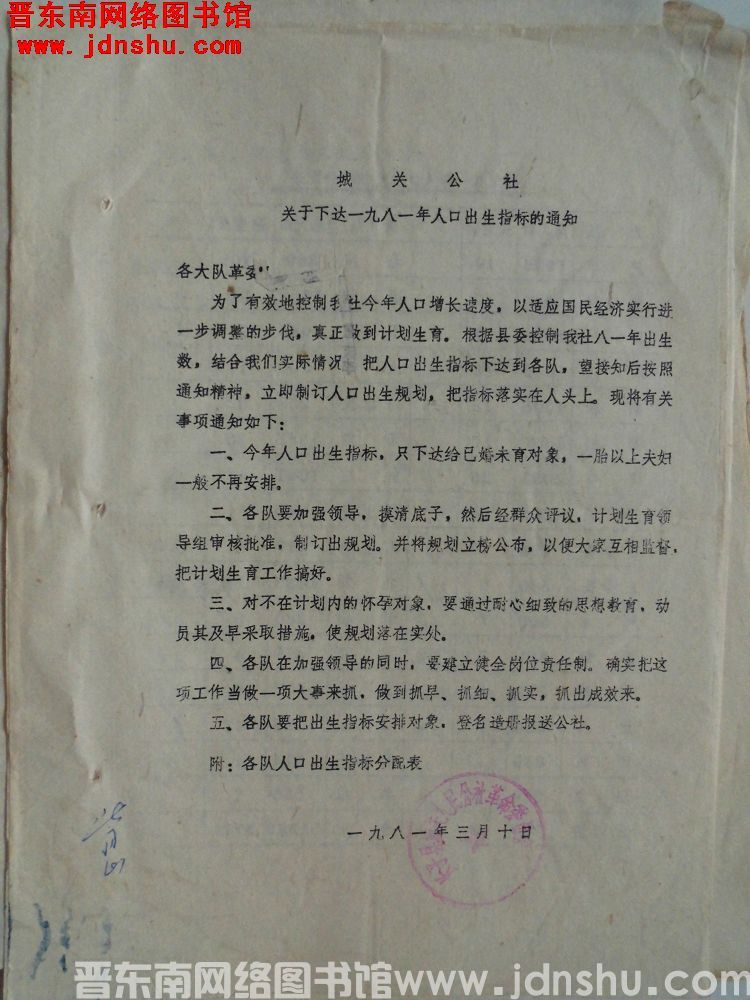 晋东南网络图书馆
www.jdnshu.com
城关公社
关于下达一九八一年人口出生指标的通知
各大队革委
为了有效地控制我社今年人口增长速度，以适应国民经济实行进
一步调整的步伐，真正做到计划生育。根据县委控制我社八一年出生
数，结合我们实际情况，把人口出生指标下达到各队，望接知后按照
通知精神，立即制订人口出生规划，把指标落实在人头上。现将有关
事项通知如下：
一、今年人口出生指标，只下达给已婚未育对象，一胎以上夫妇
一般不再安排。
二、各队要加强领导，摸清底子，然后经群众评议，计划生育领
导组审核批准，制订出规划。并将规划立榜公布，以便大家互相监督，
把计划生育工作搞好。
三、对不在计划内的怀孕对象，要通过耐心细致的思想教育，动
员其及早采取措施，使规划落在实处。
四、各队在加强领导的同时，要建立健全岗位责任制。确实把这
项工作当做一项大事来抓，做到抓早、抓细、抓实，抓出成效来。
五、各队要把出生指标安排对象，登名造册报送公社。
附：各队人口出生指标分配表
人民公社革命委
一九八一年三月十日
晋东南网络图书馆www.jdnshu.com